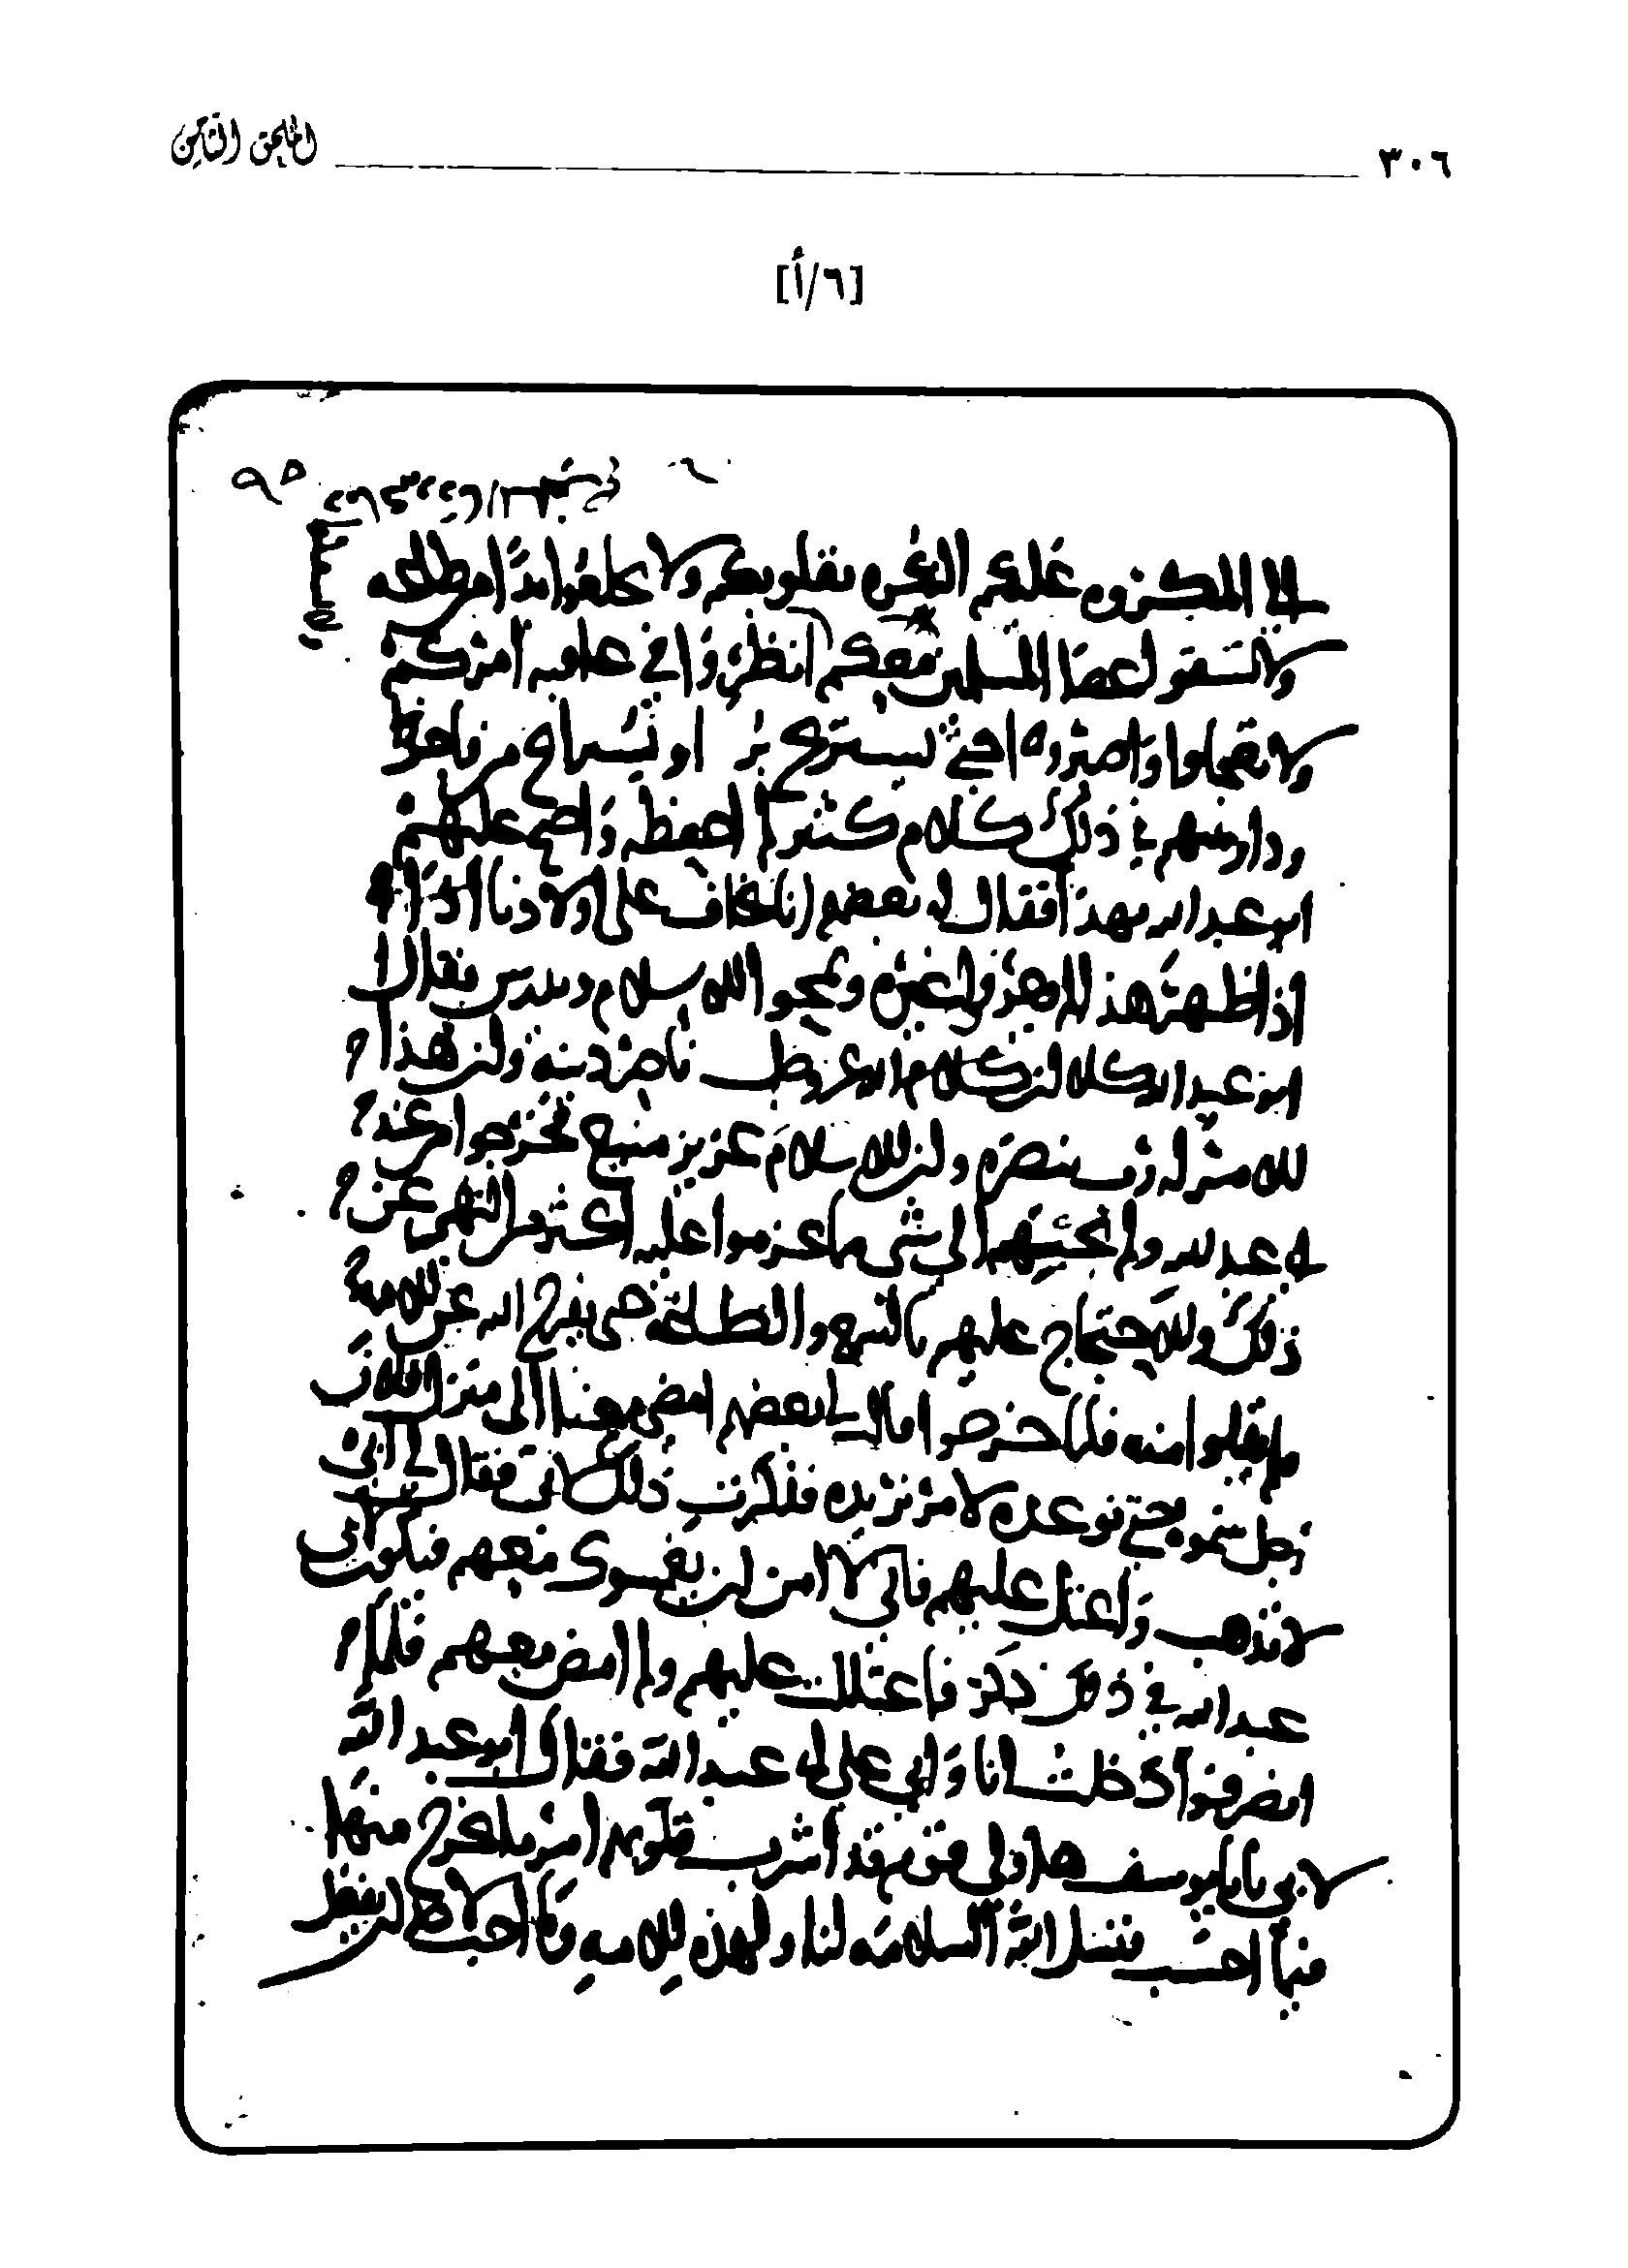 ٣٠٦
الملحق الثامن
[٦/أ]
٩٥
عليكم النكره بقلوبكم ولا تخلعوا يدا من طاعه
ولا تشقوا عصا المسلمين معكم انظروا في عاقبه امركم
ولا تعجلوا واصبروا حتى يستريح بر او يستراح من فاجر
ودار بينهم في ذلك كلام كثير لم احفظه واحتج عليهم
ابو عبد الله بهذا فقال له بعضهم انا نخاف على اولادنا اذا
اذا ظهر هذا لم يعرفوا غيره ويمحو الله سلام ويدرس فقال
ابو عبد الله كلا ان الله عز وجل ناصر دينه وان هذا الامر
لله من له رب ينصره وان الاسلام عزيز منيع فخرجوا من عند
ابي عبد الله ولم يجبهم الى شي مما عزموا عليه اكثر من النهي عن
ذلك والاحتجاج عليهم بالسمع والطاعه حتى يفرج الله عن الامه
ولم يقبلوا منه فلما خرجوا قال لي بعضهم امض معنا الى منزل فلان
رجل سموه حتى نوعده لامر نريده فذكرت ذلك لابي فقال لي ابي
لا تذهب واعتل عليهم فاني لا امن ان يغمسوك معهم فيكون لابي
عبد الله في ذلك ذكر فاعتللت عليهم ولم امض معهم فلما
انصرفوا دخلت انا وابي على ابي عبد الله فقال ابو عبد الله
لابي يا با يوسف هاولي قوم قد اشرب قلوبهم امر ما يخرج منها
فيما احسب فنسل الله السلامه لنا ولهذه الامه وما احب لاحد ان يفعل